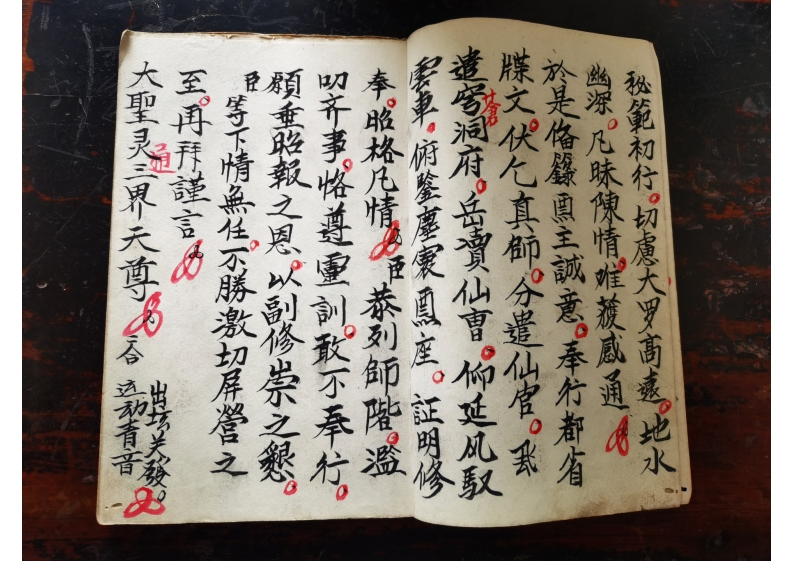 秘範初行。切慮大罗高遠。地水
幽深。凡昧陳情。难獲感通
於是偹籙焉主誠意。奉行都省
牒文。伏乞真師。分遣仙官。飛
遣穹蒼洞府。岳瀆仙曹。仰延风馭
雲車。俯鑒塵寰鳳座。証明修
奉。昭格凡情 臣 恭列師階。濫
叨齐事。恪遵靈訓。敢不奉行。
願垂昭報之恩。以副修崇之懇。
臣等下情無任。不勝激切屏營之
至。再拜謹言
大聖灵通三界天尊 二合
出坛关發。
运动青音